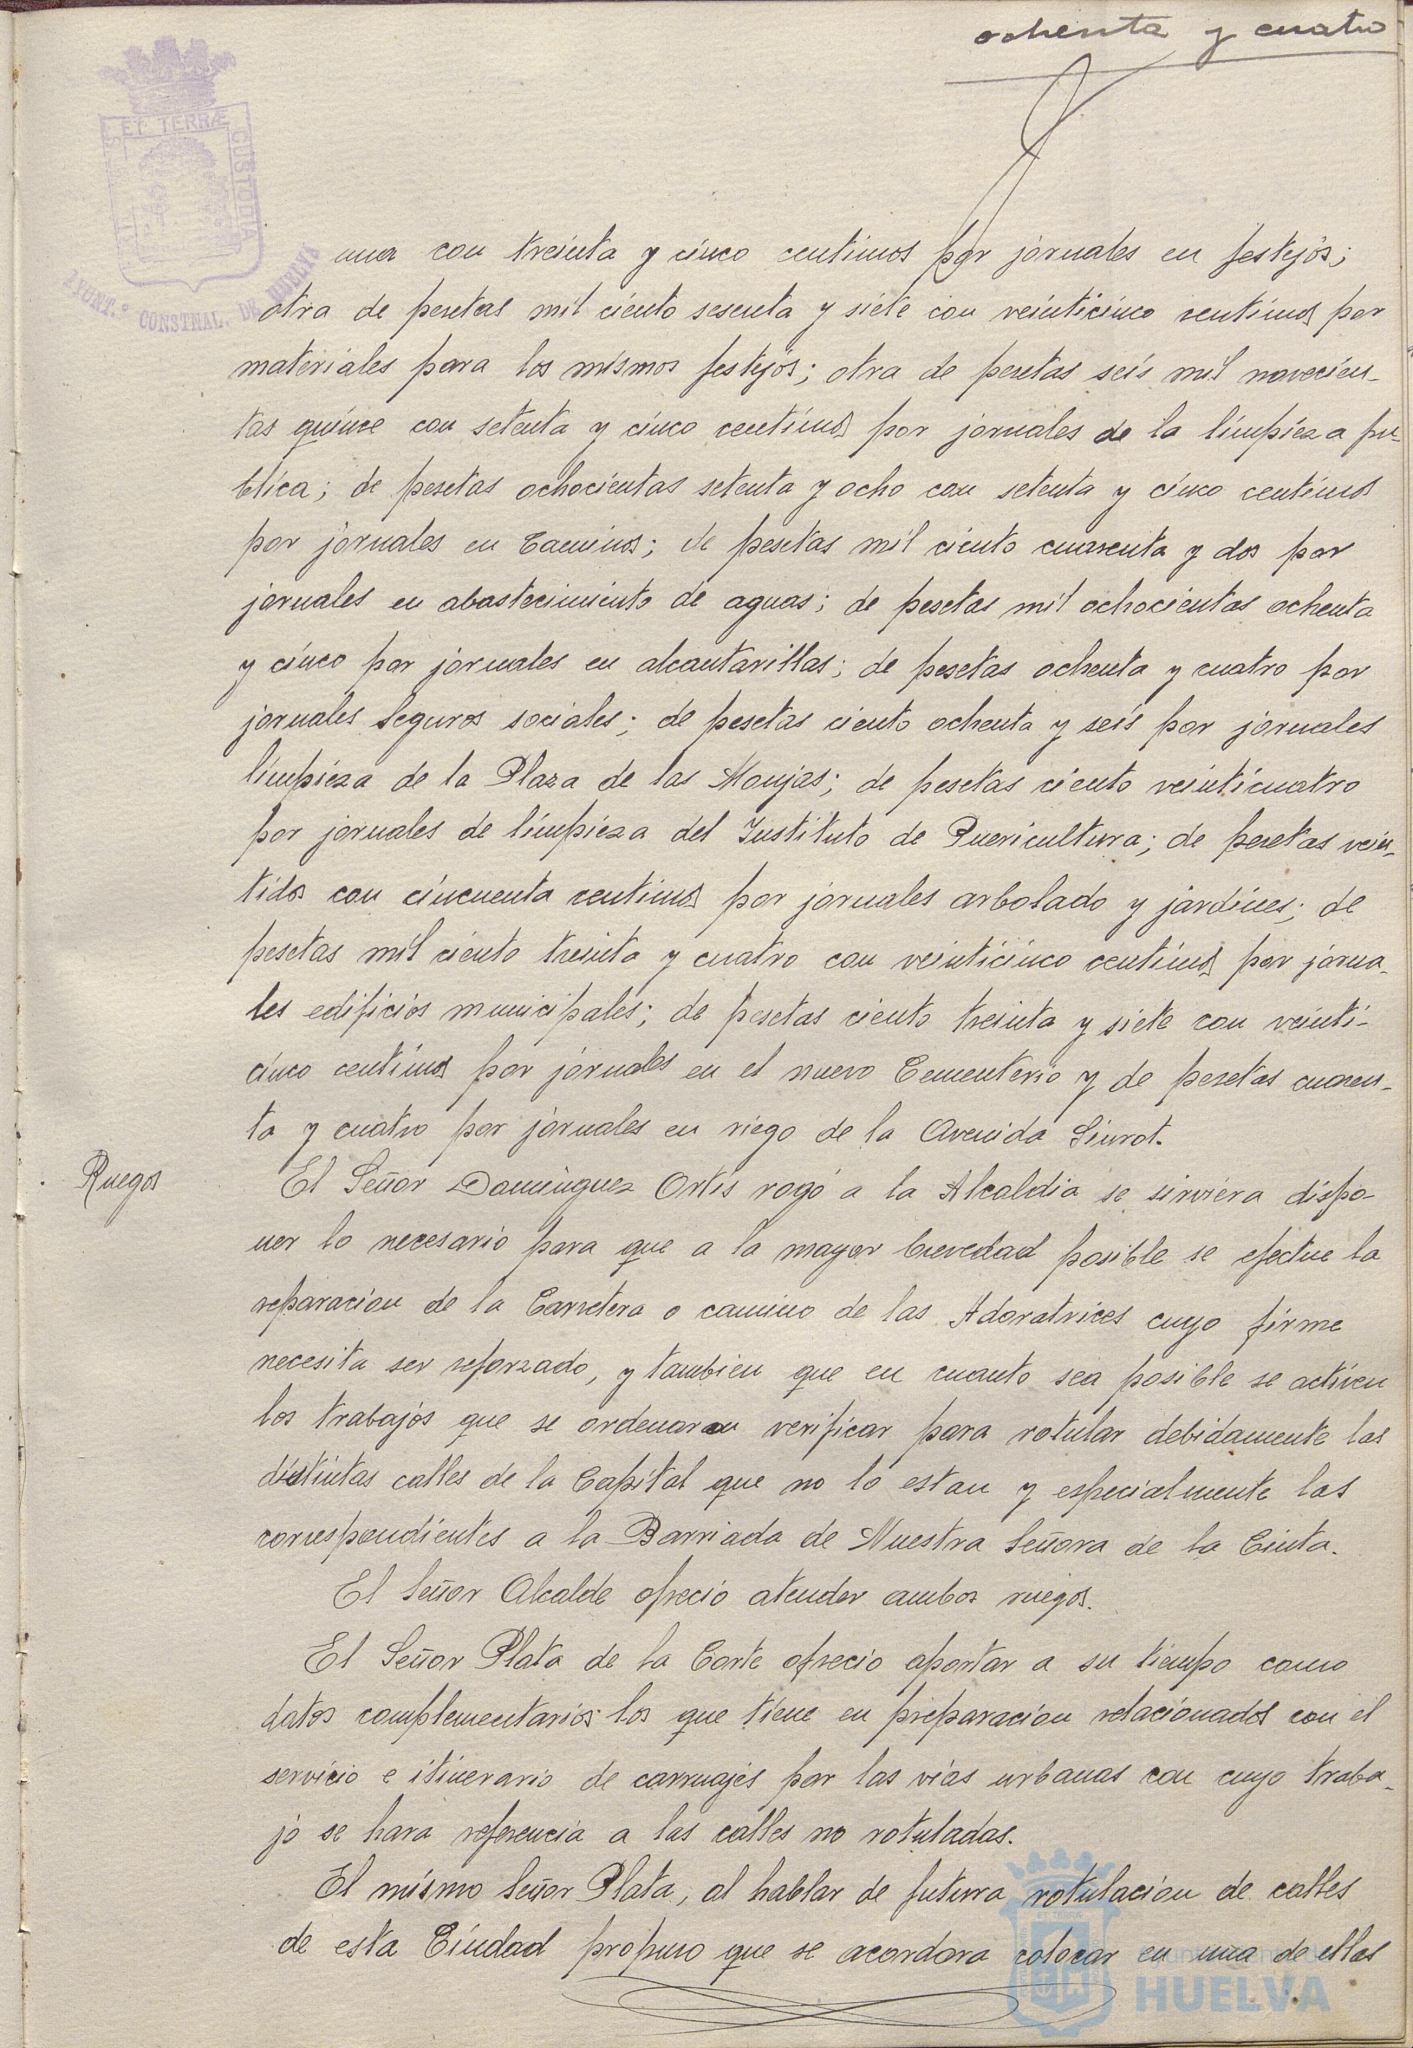 ochenta y cuatro
ET TERRÆ
CUSTODIA
AYUNT.º CONSTNAL. DE HUELVA
una con treinta y cinco centimos por jornales en festejos;
otra de pesetas mil ciento sesenta y siete con veinticinco centimos por
materiales para los mismos festejos; otra de pesetas seis mil novecien-
tas quince con setenta y cinco centimos por jornales de la limpieza pu-
blica; de pesetas ochocientas setenta y ocho con setenta y cinco centimos
por jornales en Caminos; de pesetas mil ciento cuarenta y dos por
jornales en abastecimiento de aguas; de pesetas mil ochocientas ochenta
y cinco por jornales en alcantarillas; de pesetas ochenta y cuatro por
jornales Seguros sociales; de pesetas ciento ochenta y seis por jornales
limpieza de la Plaza de las Monjas; de pesetas ciento veinticuatro
por jornales de limpieza del Instituto de Puericultura; de pesetas vein-
tidos con cincuenta centimos por jornales arbolado y jardines; de
pesetas mil ciento treinta y cuatro con veinticinco centimos por jorna-
les edificios municipales; de pesetas ciento treinta y siete con veinti-
cinco centimos por jornales en el nuevo Cementerio y de pesetas cuaren-
ta y cuatro por jornales en riego de la Avenida Siurot.
Ruegos
El Señor Dominguez Ortis rogó a la Alcaldia se sirviera dispo-
ner lo necesario para que a la mayor brevedad posible se efectue la
reparacion de la Carretera o camino de las Adoratrices cuyo firme
necesita ser reforzado, y tambien que en cuanto sea posible se activen
los trabajos que se ordenaran verificar para rotular debidamente las
distintas calles de la Capital que no lo estan y especialmente las
correspondientes a la Barriada de Nuestra Señora de la Cinta.
El Señor Alcalde ofrecio atender ambos ruegos.
El Señor Plata de la Corte ofrecio aportar a su tiempo como
datos complementarios los que tiene en preparacion relacionados con el
servicio e itinerario de carruajes por las vias urbanas con cuyo traba-
jo se hara referencia a las calles no rotuladas.
El mismo Señor Plata, al hablar de futura rotulacion de calles
de esta Ciudad propuso que se acordara colocar en una de ellas
HUELVA